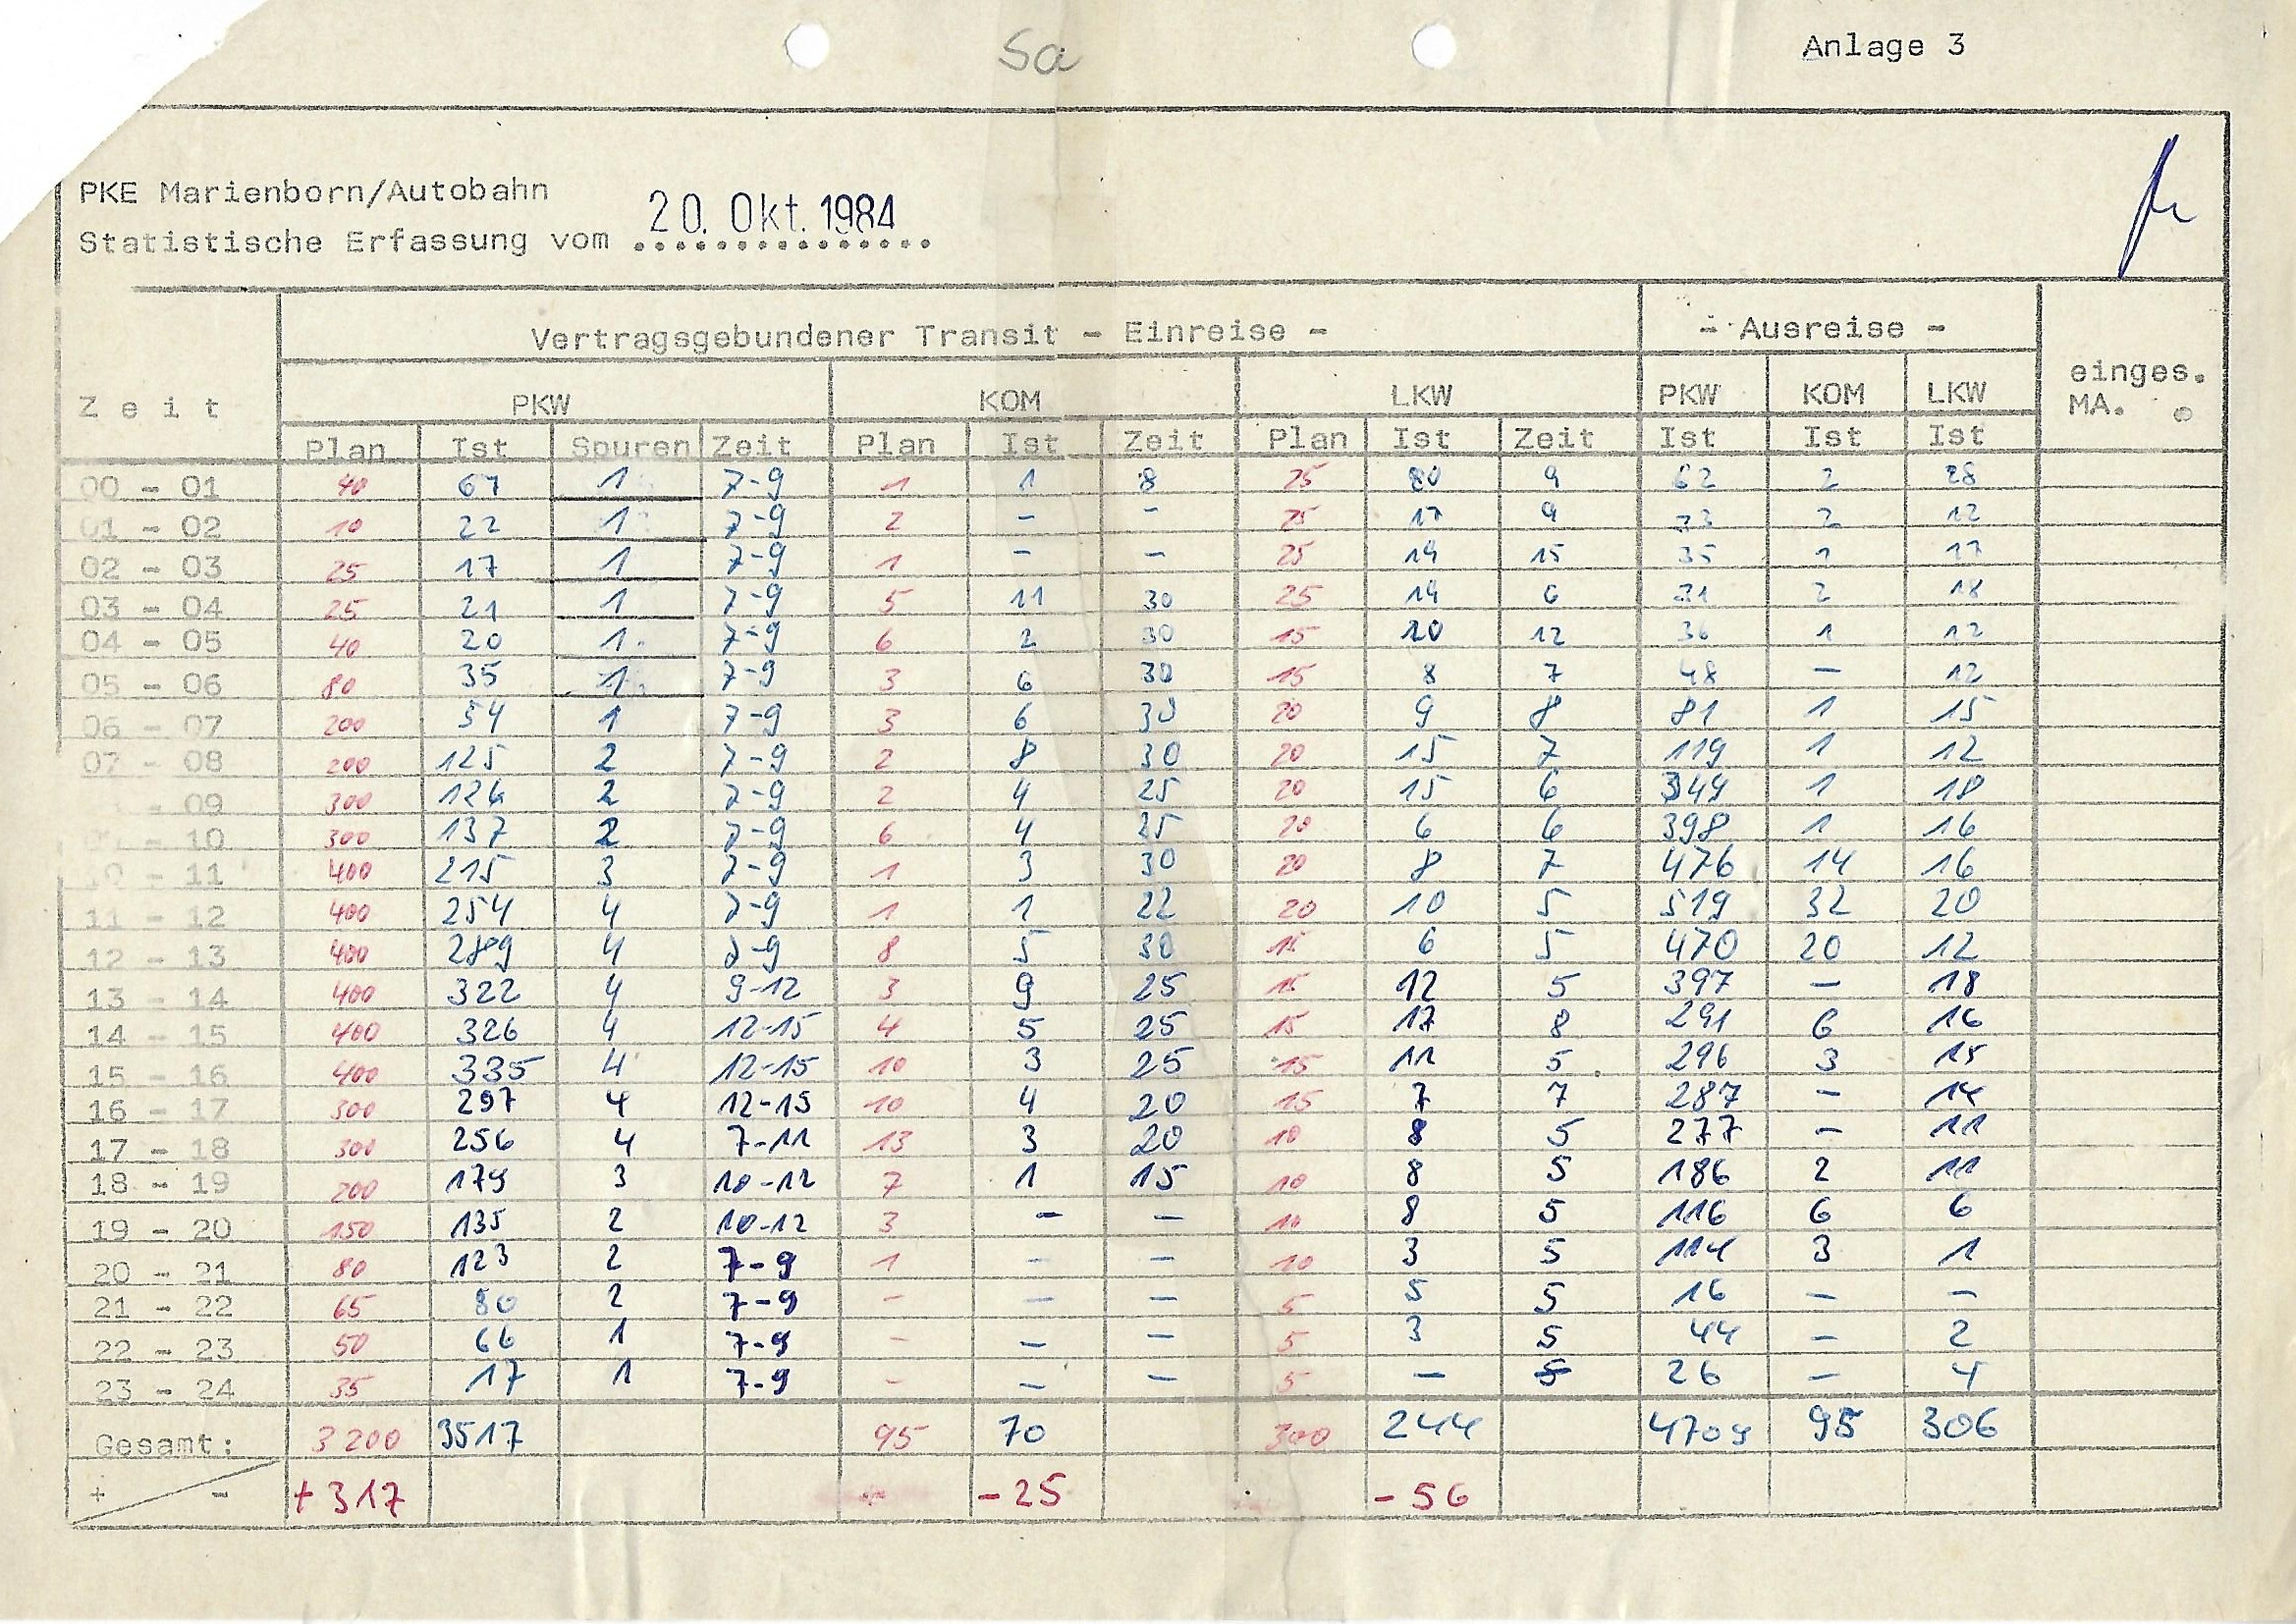 Sa
Anlage 3
PKE Marienborn/Autobahn
Statistische Erfassung vom 20. Okt. 1984
Vertragsgebundener Transit - Einreise - - Ausreise -
Zeit PKW KOM LKW PKW KOM LKW einges. MA.
Plan Ist Spuren Zeit Plan Ist Zeit Plan Ist Zeit Ist Ist Ist
00 - 01 40 67 1 7-9 1 1 8 25 20 9 62 2 28
01 - 02 10 22 1 7-9 2 - - 25 17 9 73 2 12
02 - 03 25 17 1 7-9 1 - - 25 19 15 35 1 17
03 - 04 25 21 1 7-9 5 11 30 25 14 6 31 2 18
04 - 05 40 20 1 7-9 6 2 30 15 20 12 36 1 12
05 - 06 80 35 1 7-9 3 6 30 15 8 7 48 - 12
06 - 07 200 54 1 7-9 3 6 30 20 9 8 81 1 15
07 - 08 200 125 2 7-9 2 8 30 20 15 7 119 1 12
- 09 300 124 2 7-9 2 4 25 20 15 6 349 1 18
- 10 300 137 2 7-9 6 4 25 20 6 6 398 1 16
10 - 11 400 215 3 7-9 1 3 30 20 8 7 476 14 16
11 - 12 400 254 4 7-9 1 1 22 20 10 5 519 32 20
12 - 13 400 289 4 7-9 8 5 30 15 6 5 470 20 12
13 - 14 400 322 4 9-12 3 9 25 15 12 5 397 - 18
14 - 15 400 326 4 12-15 4 5 25 15 17 8 291 6 16
15 - 16 400 335 4 12-15 10 3 25 15 11 5 296 3 15
16 - 17 300 297 4 12-15 10 4 20 15 7 7 287 - 14
17 - 18 300 256 4 7-11 13 3 20 10 8 5 277 - 11
18 - 19 200 179 3 10-12 7 1 15 10 8 5 186 2 11
19 - 20 150 135 2 10-12 3 - - 10 8 5 116 6 6
20 - 21 80 123 2 7-9 1 - - 10 3 5 114 3 1
21 - 22 65 80 2 7-9 - - - 5 5 5 16 - -
22 - 23 50 66 1 7-9 - - - 5 3 5 44 - 2
23 - 24 35 17 1 7-9 - - - 5 - 5 26 - 4
Gesamt: 3200 3517 95 70 300 244 4709 95 306
+ - +317 -25 -56